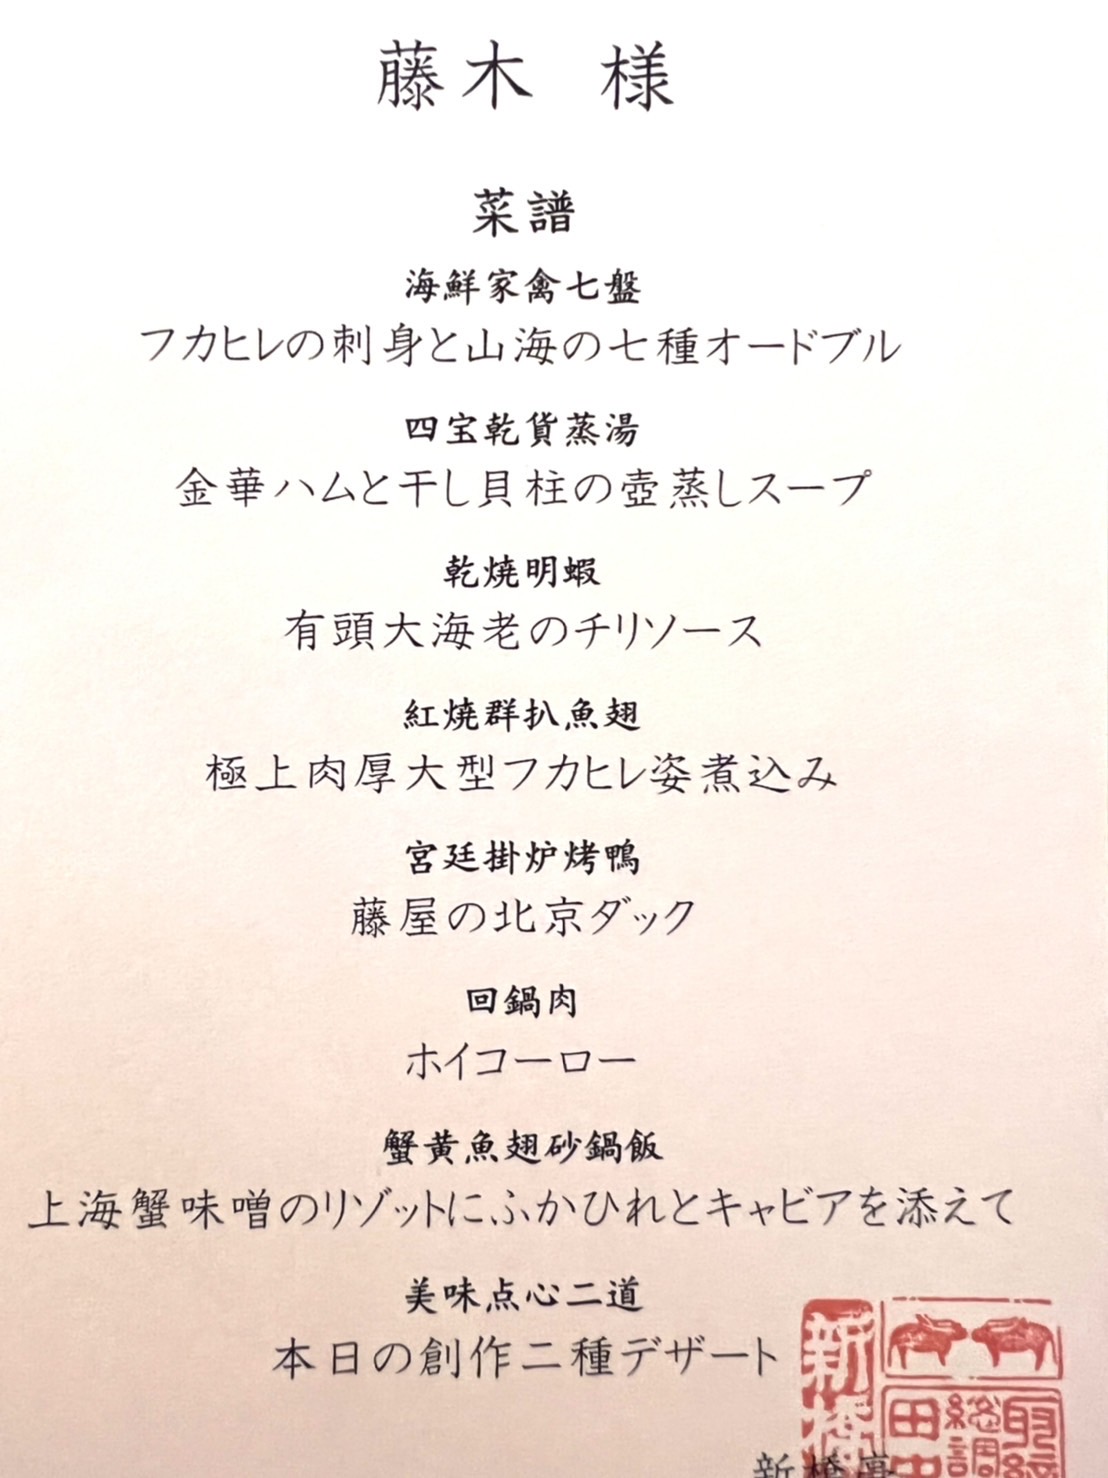 藤木 様
菜譜
海鮮家禽七盤
フカヒレの刺身と山海の七種オードブル
四宝乾貨蒸湯
金華ハムと干し貝柱の壺蒸しスープ
乾焼明蝦
有頭大海老のチリソース
紅焼群扒魚翅
極上肉厚大型フカヒレ姿煮込み
宮廷掛炉烤鴨
藤屋の北京ダック
回鍋肉
ホイコーロー
蟹黄魚翅砂鍋飯
上海蟹味噌のリゾットにふかひれとキャビアを添えて
美味点心二道
本日の創作二種デザート
新橋
田
総調
新橋亭